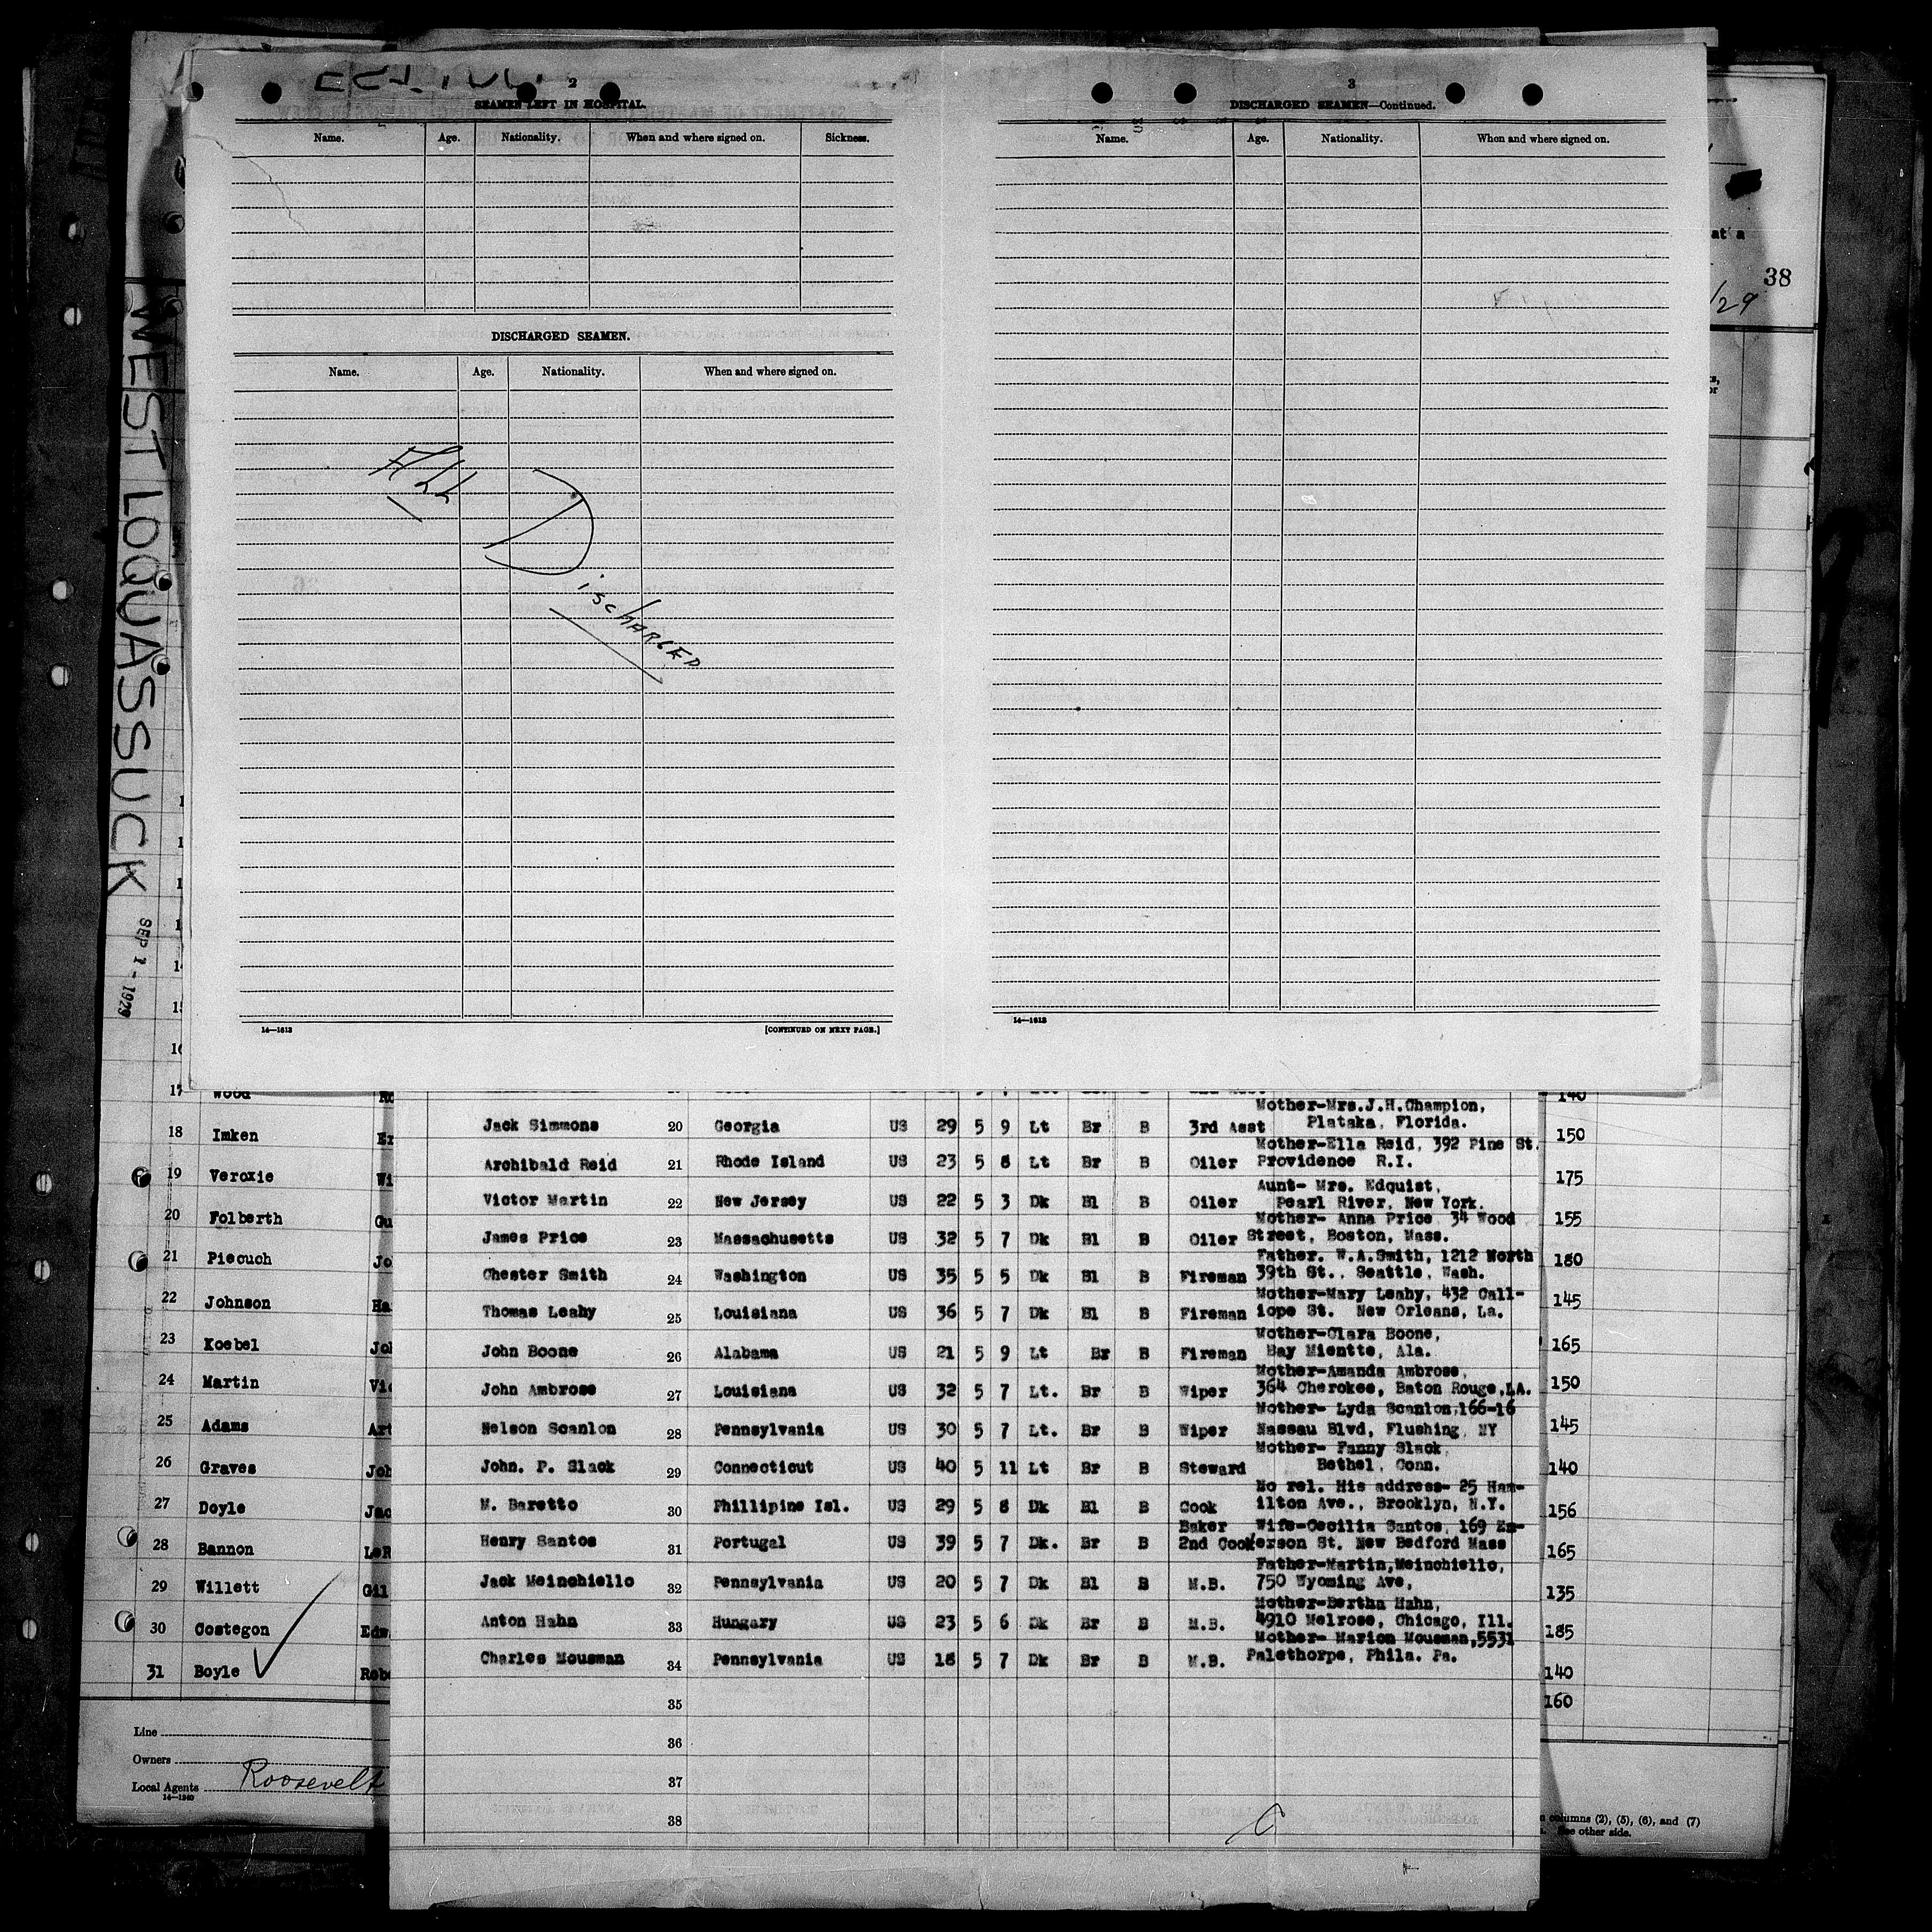 2
SEAMEN LEFT IN HOSPITAL.
Name. Age. Nationality. When and where signed on. Sickness.
DISCHARGED SEAMEN.
Name. Age. Nationality. When and where signed on.
All Discharged
14—1613 [CONTINUED ON NEXT PAGE.]
3
DISCHARGED SEAMEN—Continued.
Name. Age. Nationality. When and where signed on.
14—1613
at a
38
/29
WEST LOQUASSUCK
SEP 1 - 1929
14
15
16
17 Wood
18 Imken Er
19 Veroxie Wi
20 Folberth Gu
21 Piecuch Jo
22 Johnson Ha
23 Koebel Joh
24 Martin Vic
25 Adams Art
26 Graves Joh
27 Doyle Jac
28 Bannon LeR
29 Willett Gil
30 Costegon Edw
31 Boyle Robe
Line
Owners
Local Agents Roosevelt
14—1240
Mother-Mrs.J.H.Champion,
Jack Simmons 20 Georgia US 29 5 9 Lt Br B 3rd Asst Plataka, Florida.
Mother-Ella Reid, 392 Pine St.
Archibald Reid 21 Rhode Island US 23 5 8 Lt Br B Oiler Providence R.I.
Aunt- Mrs. Edquist,
Victor Martin 22 New Jersey US 22 5 3 Dk Bl B Oiler Pearl River, New York.
Mother- Anna Price 34 Wood
James Price 23 Massachusetts US 32 5 7 Dk Bl B Oiler Street, Boston, Mass.
Father. W.A.Smith, 1212 North
Chester Smith 24 Washington US 35 5 5 Dk Bl B Fireman 39th St., Seattle, Wash.
Mother-Mary Leahy, 432 Call-
Thomas Leahy 25 Louisiana US 36 5 7 Dk Bl B Fireman iope St. New Orleans, La.
Mother-Clara Boone,
John Boone 26 Alabama US 21 5 9 Lt Br B Fireman Bay Mientte, Ala.
Mother-Amanda Ambrose,
John Ambrose 27 Louisiana US 32 5 7 Lt. Br B Wiper 364 Cherokee, Baton Rouge,LA.
Mother- Lyda Scanlon,166-16
Nelson Scanlon 28 Pennsylvania US 30 5 7 Lt. Br B Wiper Nassau Blvd, Flushing, NY
Mother- Fanny Slack,
John. P. Slack 29 Connecticut US 40 5 11 Lt Br B Steward Bethel, Conn.
No rel. His address- 25 Ham-
M. Baretto 30 Phillipine Isl. US 29 5 8 Dk Bl B Cook ilton Ave., Brooklyn, N.Y.
Baker Wife-Cecilia Santos, 169 Em-
Henry Santos 31 Portugal US 39 5 7 Dk. Br B 2nd Cook erson St. New Bedford Mass
Father-Martin,Meinchiello,
Jack Meinchiello 32 Pennsylvania US 20 5 7 Dk Bl B M.B. 750 Wyoming Ave,
Mother-Bertha Hahn,
Anton Hahn 33 Hungary US 23 5 6 Dk Br B M.B. 4910 Melrose, Chicago, Ill.
Mother- Marion Mousman,5531
Charles Mousman 34 Pennsylvania US 18 5 7 Dk Br B M.B. Palethorpe, Phila. Pa.
35
36
37
38
140
150
175
155
180
145
165
150
145
140
156
165
135
185
140
160
columns (2), (5), (6), and (7)
See other side.